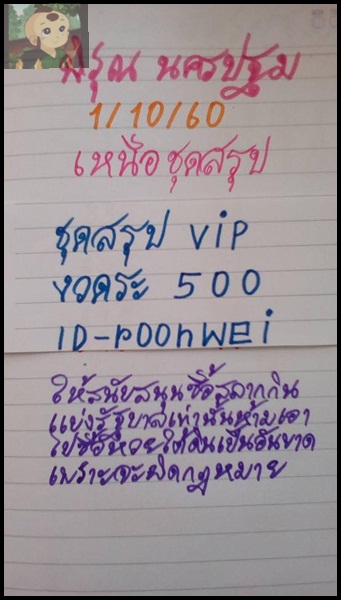 พิรุณ นครปฐม
1/10/60
เหนือชุดสรุป
ชุดสรุป vip
งวดระ 500
ID-poohwei
ให้สนับสนุนซื้อสลากกิน
แบ่งรัฐบาลเท่านั้นห้ามเอา
ไปซื้อหวยใต้ดินเป็นอันขาด
เพราะจะผิดกฎหมาย